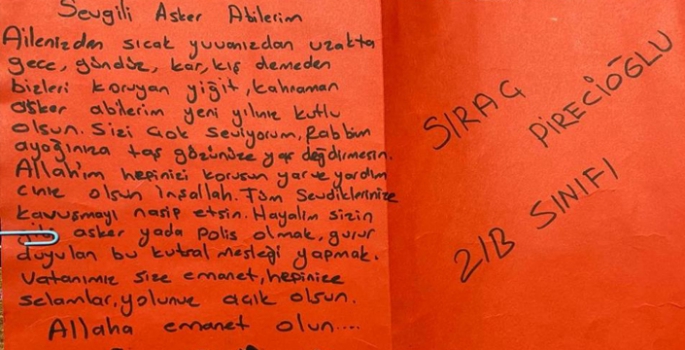 Sevgili Asker Abilerim
Ailenizden sıcak yuvanızdan uzakta
gece, gündüz, kar, kış demeden
bizleri koruyan yiğit, kahraman
asker abilerim yeni yılınız kutlu
olsun. Sizi çok seviyorum, Rabbim
ayağınıza taş gözünüze yaş değdirmesin.
Allah'ım hepinizi korusun yar ve yardım
cınız olsun İnşallah. Tüm Sevdiklerinize
kavuşmayı nasip etsin. Hayalim sizin
gibi asker yada Polis olmak, gurur
duyulan bu kutsal mesleği yapmak.
Vatanımız size emanet, hepinize
selamlar, yolunuz açık olsun.
Allaha emanet olun....
SIRAÇ
PİRECİOĞLU
2/B SINIFI